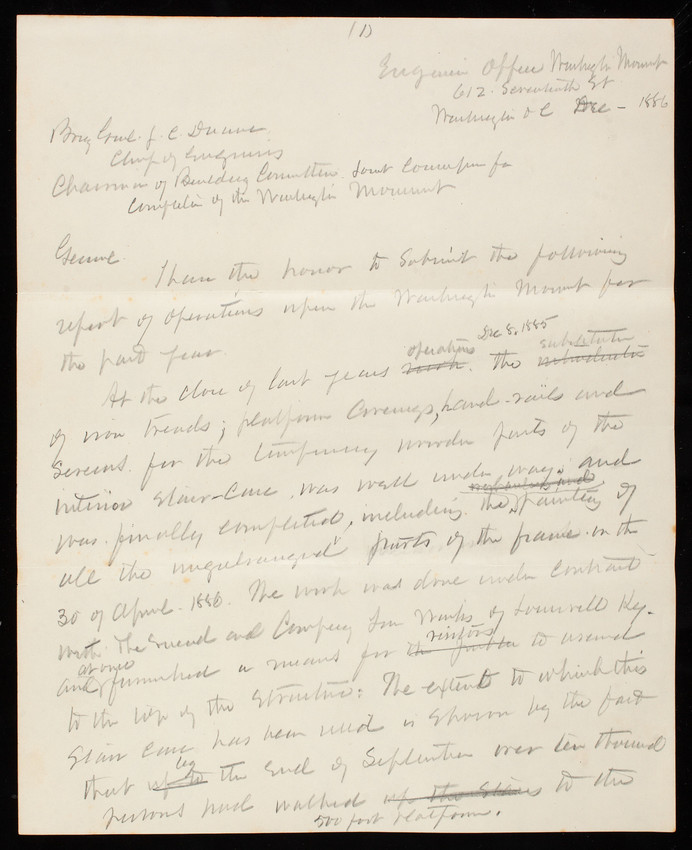 1)
Engineer Office Washgtn Monmt
612 Seventeenth St
Washington D C Dec - 1886
Brig Genl J. C. Duane
Chief of Engineers
Chairman of Building Committee Joint Commission for
Completion of the Washgtn Monument
General
I have the honor to submit the following
report of operations upon the Washgtn Monmt for
the past year.
operations Dec 8, 1885 substitution
At the close of last years work. the introduction
of iron treads; platform coverings, hand-rails and
screens for the temporary wooden parts of the
interior stair-case, was well under way; and
was finally completed, including the painting of
all the parts of the frame on the
30 of April 1886. The work was done under contract
with the Snead and Company Iron Works of Louisville Ky.
at once visitors
and furnished a means for the public to ascend
to the top of the structure: The extent to which this
stair case has been used is shown by the fact
by
that up to the end of September over ten thousand
persons had walked up the stairs to the
500 foot platform.